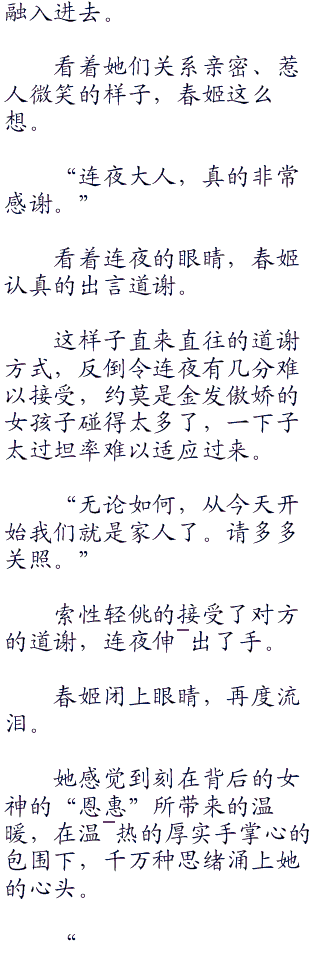 融入进去。
看着她们关系亲密、惹
人微笑的样子，春姬这么
想。
“连夜大人，真的非常
感谢。”
看着连夜的眼睛，春姬
认真的出言道谢。
这样子直来直往的道谢
方式，反倒令连夜有几分难
以接受，约莫是金发傲娇的
女孩子碰得太多了，一下子
太过坦率难以适应过来。
“无论如何，从今天开
始我们就是家人了。请多多
关照。”
索性轻佻的接受了对方
的道谢，连夜伸¯出了手。
春姬闭上眼睛，再度流
泪。
她感觉到刻在背后的女
神的“恩惠”所带来的温
暖，在温¯热的厚实手掌心的
包围下，千万种思绪涌上她
的心头。
“